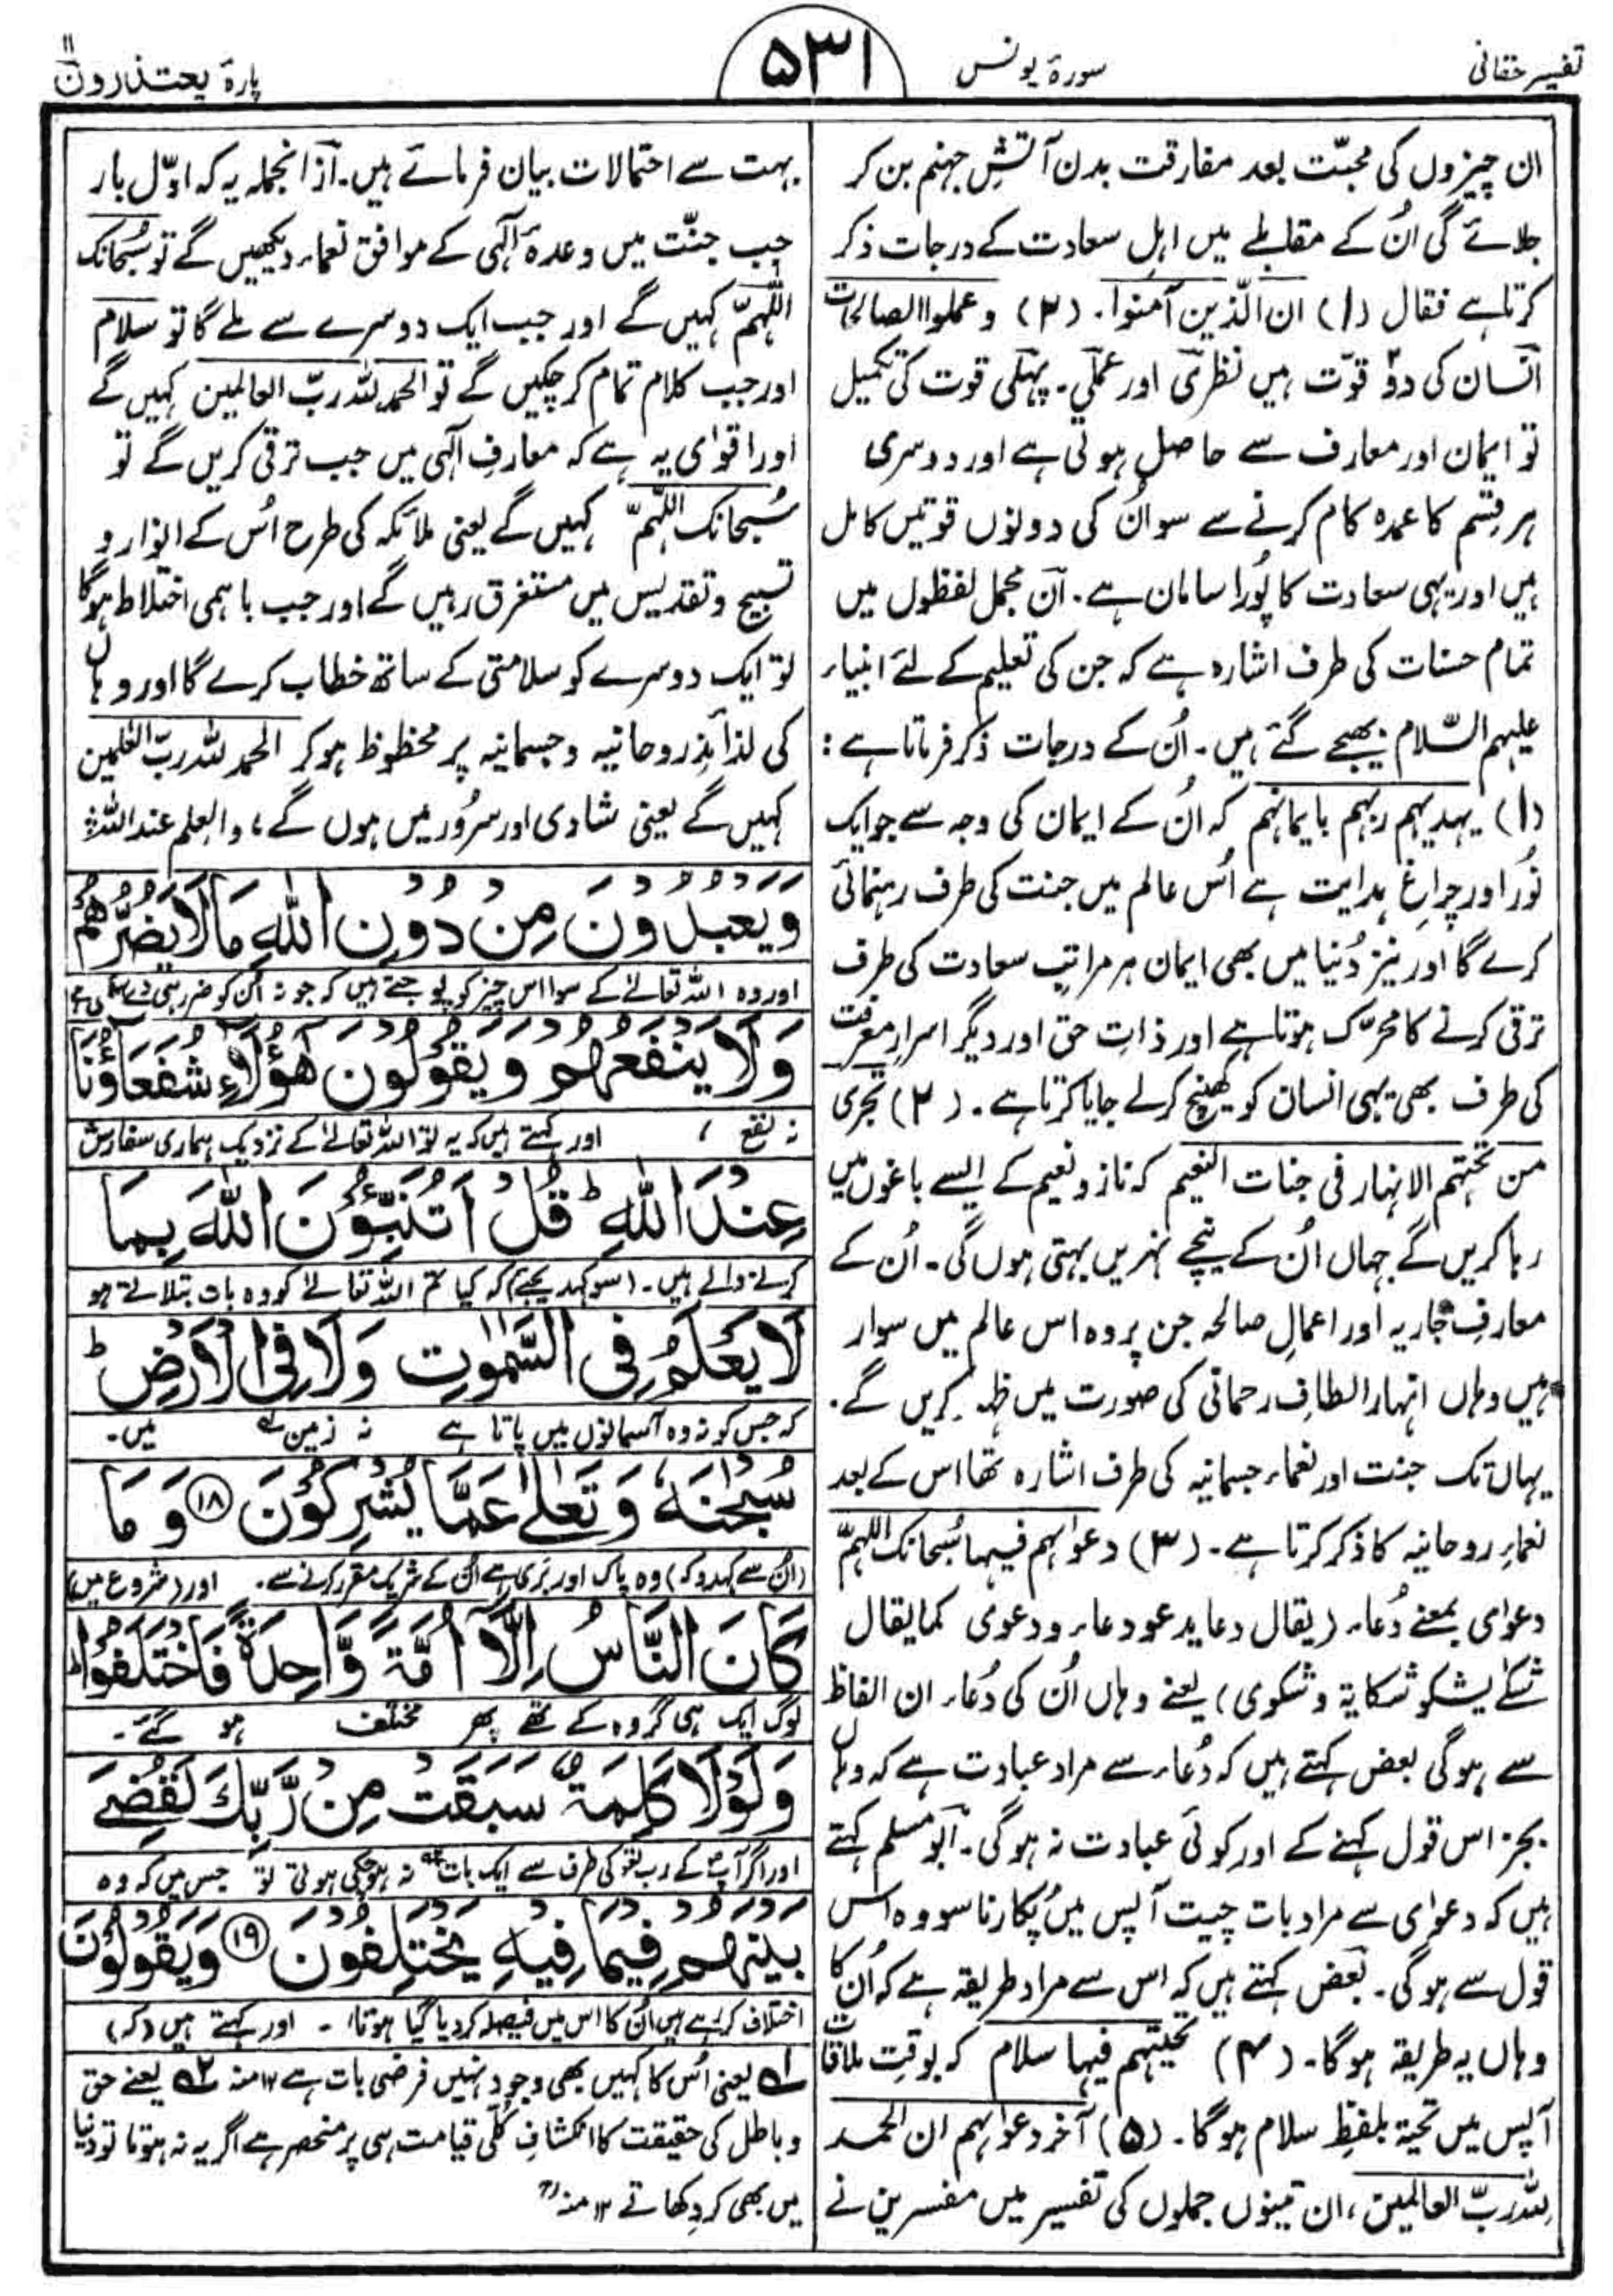 تفسیر حقانی
سورۂ یونس
۵۳۱
پارۂ یعتذرون ۱۱
ان چیزوں کی محبّت بعد مفارقت بدن آتشِ جہنم بن کر
جلائے گی اُن کے مقابلے میں اہلِ سعادت کے درجات ذکر
کرتا ہے فقال (۱) ان الّذین آمنوا۔ (۲) وعملوا الصالحات
انسان کی دوّ قوّت ہیں نظری اور عملی۔ پہلی قوت کی تکمیل
تو ایمان اور معارف سے حاصل ہوتی ہے اور دوسری
ہر قسم کا عمدہ کام کرنے سے سو اُن کی دونوں قوتیں کامل
ہیں اور یہی سعادت کا پُورا سامان ہے۔ ان مجمل لفظوں میں
تمام حسنات کی طرف اشارہ ہے کہ جن کی تعلیم کے لئے انبیاء
علیہم السّلام بھیجے گئے ہیں۔ اُن کے درجات ذکر فرماتا ہے:
(۱) یہدیہم ربہم بایمانہم کہ اُن کے ایمان کی وجہ سے جو ایک
نُور اور چراغِ ہدایت ہے اُس عالم میں جنت کی طرف رہنمائی
کرے گا اور نیز دُنیا میں بھی ایمان ہر مراتبِ سعادت کی طرف
ترقی کرنے کا محرّک ہوتا ہے اور ذاتِ حق اور دیگر اسرارِ معرفت
کی طرف بھی یہی انسان کو کھینچ کر لے جایا کرتا ہے۔ (۲) تجری
من تحتہم الانہار فی جنات النعیم کہ ناز و نعیم کے ایسے باغوں میں
رہا کریں گے جہاں اُن کے نیچے نہریں بہتی ہوں گی۔ اُن کے
معارفِ جاریہ اور اعمالِ صالحہ جن پر وہ اس عالم میں سوار
ہیں وہاں انہار الطافِ رحمانی کی صورت میں ظہور کریں گے۔
یہاں تک جنت اور نعماء جسمانیہ کی طرف اشارہ تھا اس کے بعد
نعماءِ روحانیہ کا ذکر کرتا ہے۔ (۳) دعواہم فیہا سُبحانک اللہمّ
دعوٰی بمعنے دُعاء (یقال دعا یدعو دعاء ودعوی کما یقال
شکٰے یشکو شکایۃ وشکوی) یعنے وہاں اُن کی دُعاء ان الفاظ
سے ہوگی بعض کہتے ہیں کہ دُعاء سے مراد عبادت ہے کہ وہاں
بجز اس قول کہنے کے اور کوئی عبادت نہ ہوگی۔ ابومسلم کہتے
ہیں کہ دعوٰی سے مراد بات چیت آپس میں پُکارنا سو وہ اس
قول سے ہوگی۔ بعض کہتے ہیں کہ اس سے مراد طریقہ ہے کہ اُن کا
وہاں یہ طریقہ ہوگا۔ (۴) تحیتہم فیہا سلام کہ بوقتِ ملاقات
آپس میں تحیۃ بلفظِ سلام ہوگا۔ (۵) آخر دعواہم ان الحمد
للہ ربّ العالمین، ان تینوں جملوں کی تفسیر میں مفسرین نے
بہت سے احتمالات بیان فرمائے ہیں۔ ازانجملہ یہ کہ اوّل بار
جب جنّت میں وعدۂ الٰہی کے موافق نعماء دیکھیں گے تو سُبحانک
اللّٰہمّ کہیں گے اور جب ایک دوسرے سے ملے گا تو سلام
اور جب کلام تمام کرچکیں گے تو الحمد للہ ربّ العالمین کہیں گے
اور اقوٰی یہ ہے کہ معارفِ الٰہی میں جب ترقی کریں گے تو
سُبحانک اللّٰہمّ کہیں گے یعنی ملائکہ کی طرح اُس کے انوار و
تسبیح و تقدیس میں مستغرق رہیں گے اور جب باہمی اختلاط ہوگا
تو ایک دوسرے کو سلامتی کے ساتھ خطاب کرے گا اور وہاں
کی لذائذِ روحانیہ و جسمانیہ پر محظوظ ہوکر الحمد للہ ربّ العٰلمین
کہیں گے یعنی شادی اور سرُور میں ہوں گے، والعلم عند اللہ
وَيَعْبُدُوْنَ مِنْ دُوْنِ اللّٰهِ مَا لَا يَضُرُّهُمْ
اور وہ اللہ تعالےٰ کے سوا اس چیز کو پوجتے ہیں کہ جو نہ اُن کو ضرر ہی دے سکتی ہے
وَلَا يَنْفَعُهُمْ وَيَقُوْلُوْنَ هٰٓؤُلَآءِ شُفَعَآؤُنَا
نہ نفع ، اور کہتے ہیں کہ یہ تو اللہ تعالےٰ کے نزدیک ہماری سفارش
عِنْدَ اللّٰهِ ؕ قُلْ اَتُنَبِّـُٔوْنَ اللّٰهَ بِمَا
کرنے والے ہیں۔ (سو کہدیجئے) کہ کیا تم اللہ تعالےٰ کو وہ بات بتلاتے ہو
لَا يَعْلَمُ فِى السَّمٰوٰتِ وَلَا فِى الْاَرْضِ ؕ
کہ جس کو نہ وہ آسمانوں میں پاتا ہے نہ زمین ؎۱ میں۔
سُبْحٰنَهٗ وَتَعٰلٰى عَمَّا يُشْرِكُوْنَ ۝۱۸ وَمَا
(اُن سے کہدو کہ) وہ پاک اور بَری ہے اُن کے شریک مقرر کرنے سے۔ اور (شروع میں)
كَانَ النَّاسُ اِلَّآ اُمَّةً وَّاحِدَةً فَاخْتَلَفُوْا ؕ
لوگ ایک ہی گروہ کے تھے پھر مختلف ہو گئے۔
وَلَوْلَا كَلِمَةٌ سَبَقَتْ مِنْ رَّبِّكَ لَقُضِىَ
اور اگر آپؐ کے رب کی طرف سے ایک بات ؎۲ نہ ہوچکی ہوتی تو جس میں کہ وہ
بَيْنَهُمْ فِيْمَا فِيْهِ يَخْتَلِفُوْنَ ۝۱۹ وَيَقُوْلُوْنَ
اختلاف کررہے ہیں اُن کا اس میں فیصلہ کردیا گیا ہوتا۔ اور کہتے ہیں (کہ)
؎۱ یعنی اُس کا کہیں بھی وجود نہیں فرضی بات ہے ۱۲منہ ؎۲ یعنے حق
و باطل کی حقیقت کا انکشافِ کُلّی قیامت ہی پر منحصر ہے اگر یہ نہ ہوتا تو دنیا
میں بھی کر دکھاتے ۱۲ منہ